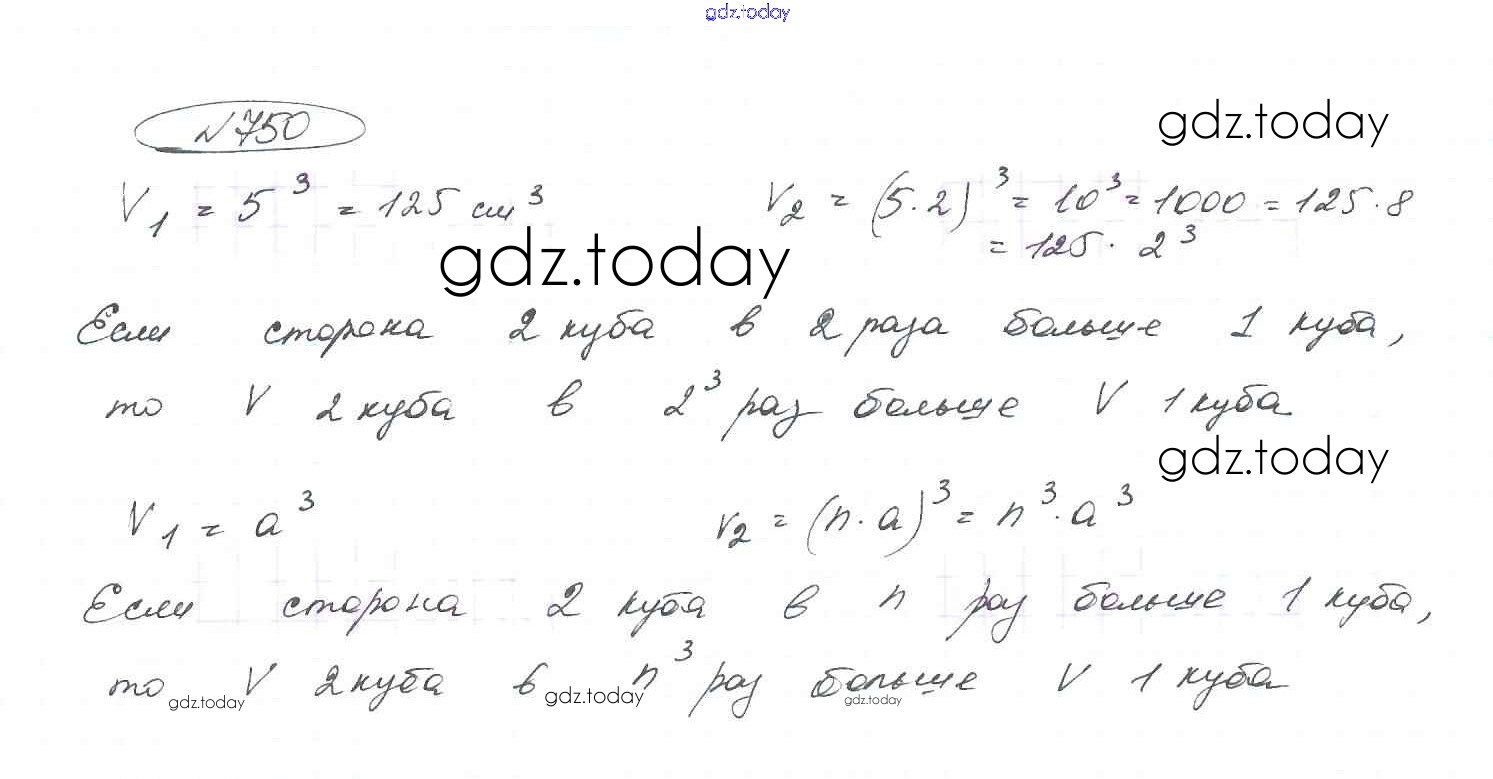 gdz.today
№750
gdz.today
V₁ = 5³ = 125 см³ V₂ = (5·2)³ = 10³ = 1000 = 125·8
= 125· 2³
gdz.today
Если сторона 2 куба в 2 раза больше 1 куба,
то V 2 куба в 2³ раз больше V 1 куба
gdz.today
V₁ = a³ V₂ = (n·a)³ = n³·a³
Если сторона 2 куба в n раз больше 1 куба,
то V 2 куба в n³ раз больше V 1 куба
gdz.today gdz.today gdz.today